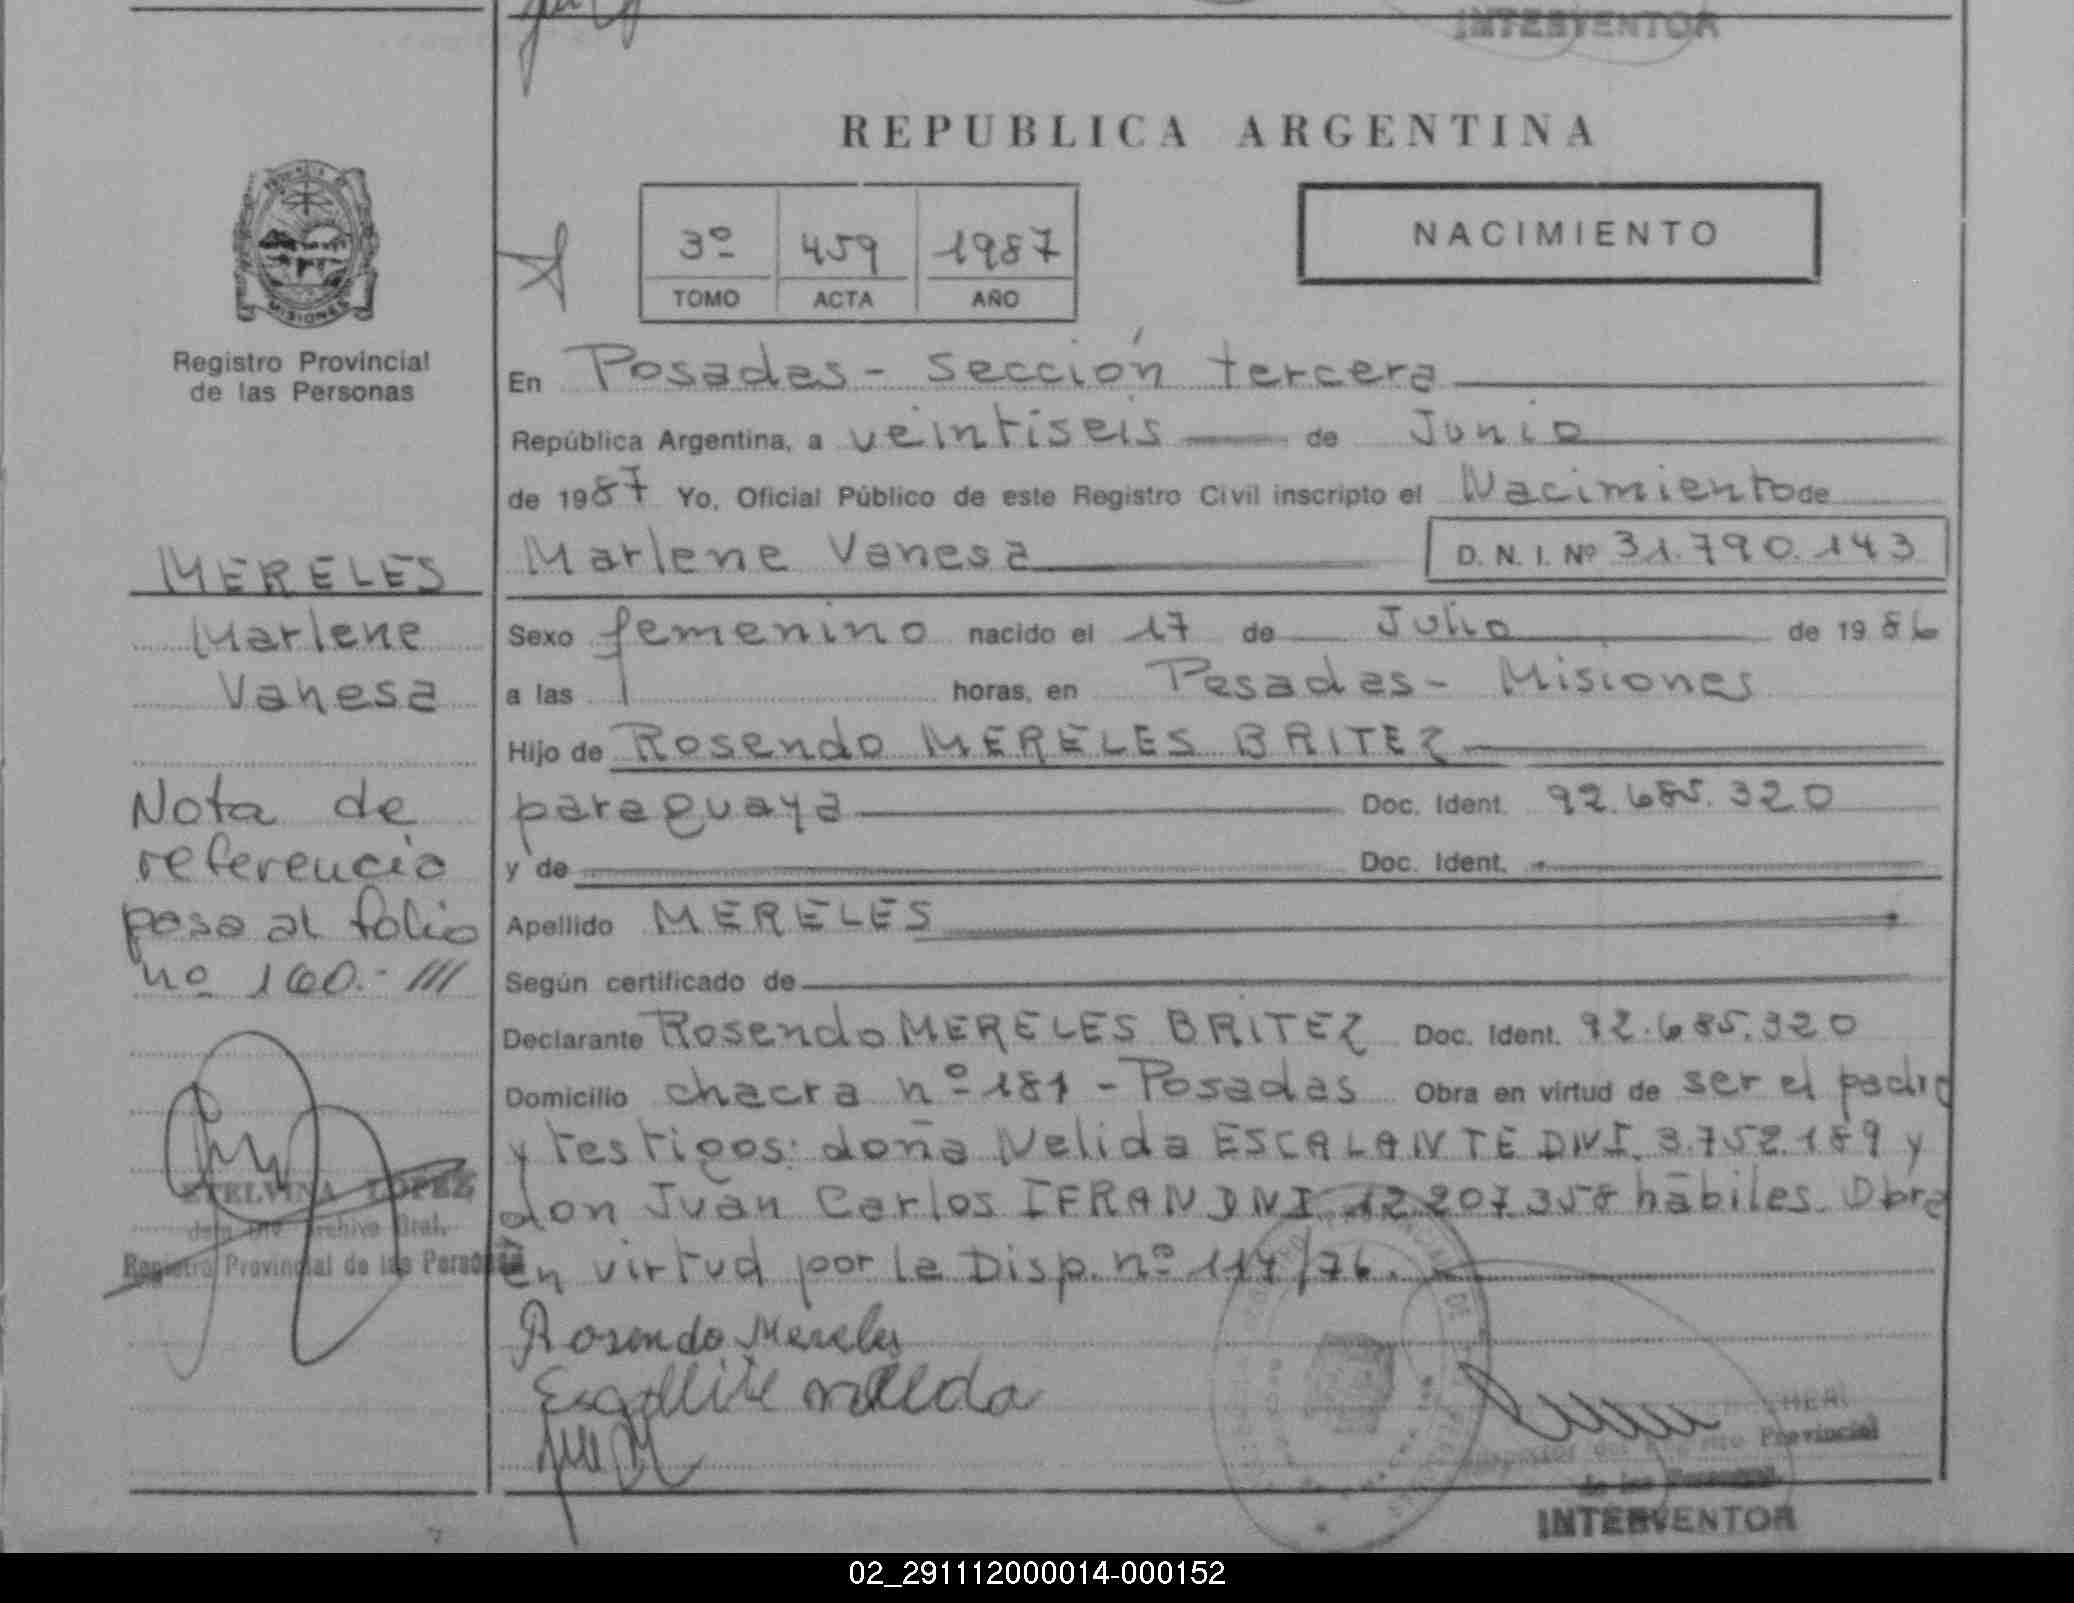 INTERVENTOR
REPUBLICA ARGENTINA
NACIMIENTO
3º 459 1987
TOMO ACTA AÑO
MISIONES
Registro Provincial
de las Personas
En Posadas - Sección tercera
República Argentina, a veintiseis de Junio
de 1987 Yo, Oficial Público de este Registro Civil inscripto el Nacimiento de
Marlene Vanesa D. N. I. Nº 31.790.143
MERELES
Marlene
Vanesa
Sexo femenino nacido el 17 de Julio de 1986
a las horas, en Posadas - Misiones
Hijo de Rosendo MERELES BRITEZ
paraguaya Doc. Ident. 92.685.320
y de Doc. Ident.
Apellido MERELES
Según certificado de
Nota de
referencia
pasa al folio
nº 160.- ///
Declarante Rosendo MERELES BRITEZ Doc. Ident. 92.685.320
Domicilio chacra nº 181 - Posadas Obra en virtud de ser el padre
y testigos: doña Nelida ESCALANTE DNI. 3.752.189 y
don Juan Carlos IFRAN DNI 12.207.358 hábiles. Obra
en virtud por la Disp. nº 114/76.
ETELVINA LOPEZ
Archivo Gral.
Registro Provincial de las Personas
Rosendo Mereles
Provincial
de las Personas
INTERVENTOR
02_291112000014-000152